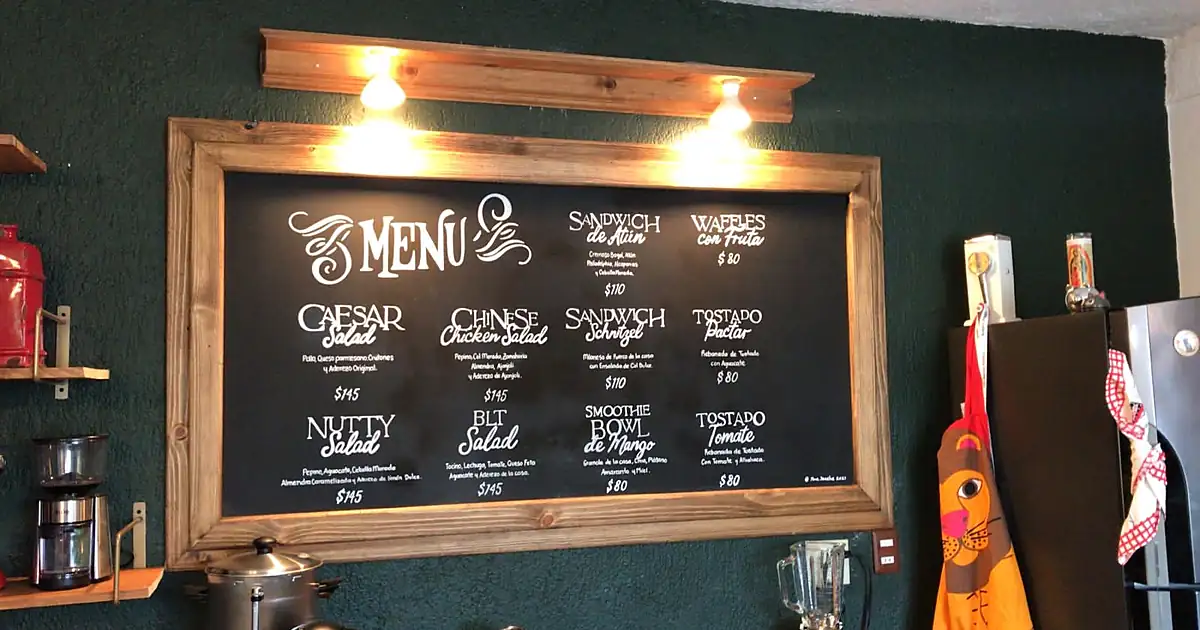 MENU
SANDWICH
de Atún
Cremoso Bagel, Atún
Philadelphia, Alcaparras
y Cebolla Morada.
$110
WAFFLES
con Fruta
$80
CAESAR
Salad
Pollo, Queso parmesano, Crutones
y Aderezo Original.
$145
CHINESE
Chicken Salad
Pepino, Col Morada, Zanahoria
Almendra, Ajonjolí
y Aderezo de Ajonjolí.
$145
SANDWICH
Schnitzel
Milanesa de Puerco de la casa
con Ensalada de Col Dulce.
$110
TOSTADO
Pactar
Rebanada de Tostada
con Aguacate.
$80
NUTTY
Salad
Pepino, Aguacate, Cebolla Morada
Almendra Caramelizada y Aderezo de Limón Dulce.
$145
BLT
Salad
Tocino, Lechuga, Tomate, Queso Feta
Aguacate y Aderezo de la casa.
$145
SMOOTHIE
BOWL
de Mango
Granola de la casa, Chía, Plátano
Amaranto y Miel.
$80
TOSTADO
Tomate
Rebanada de Tostada
Con Tomate y Albahaca.
$80
2021